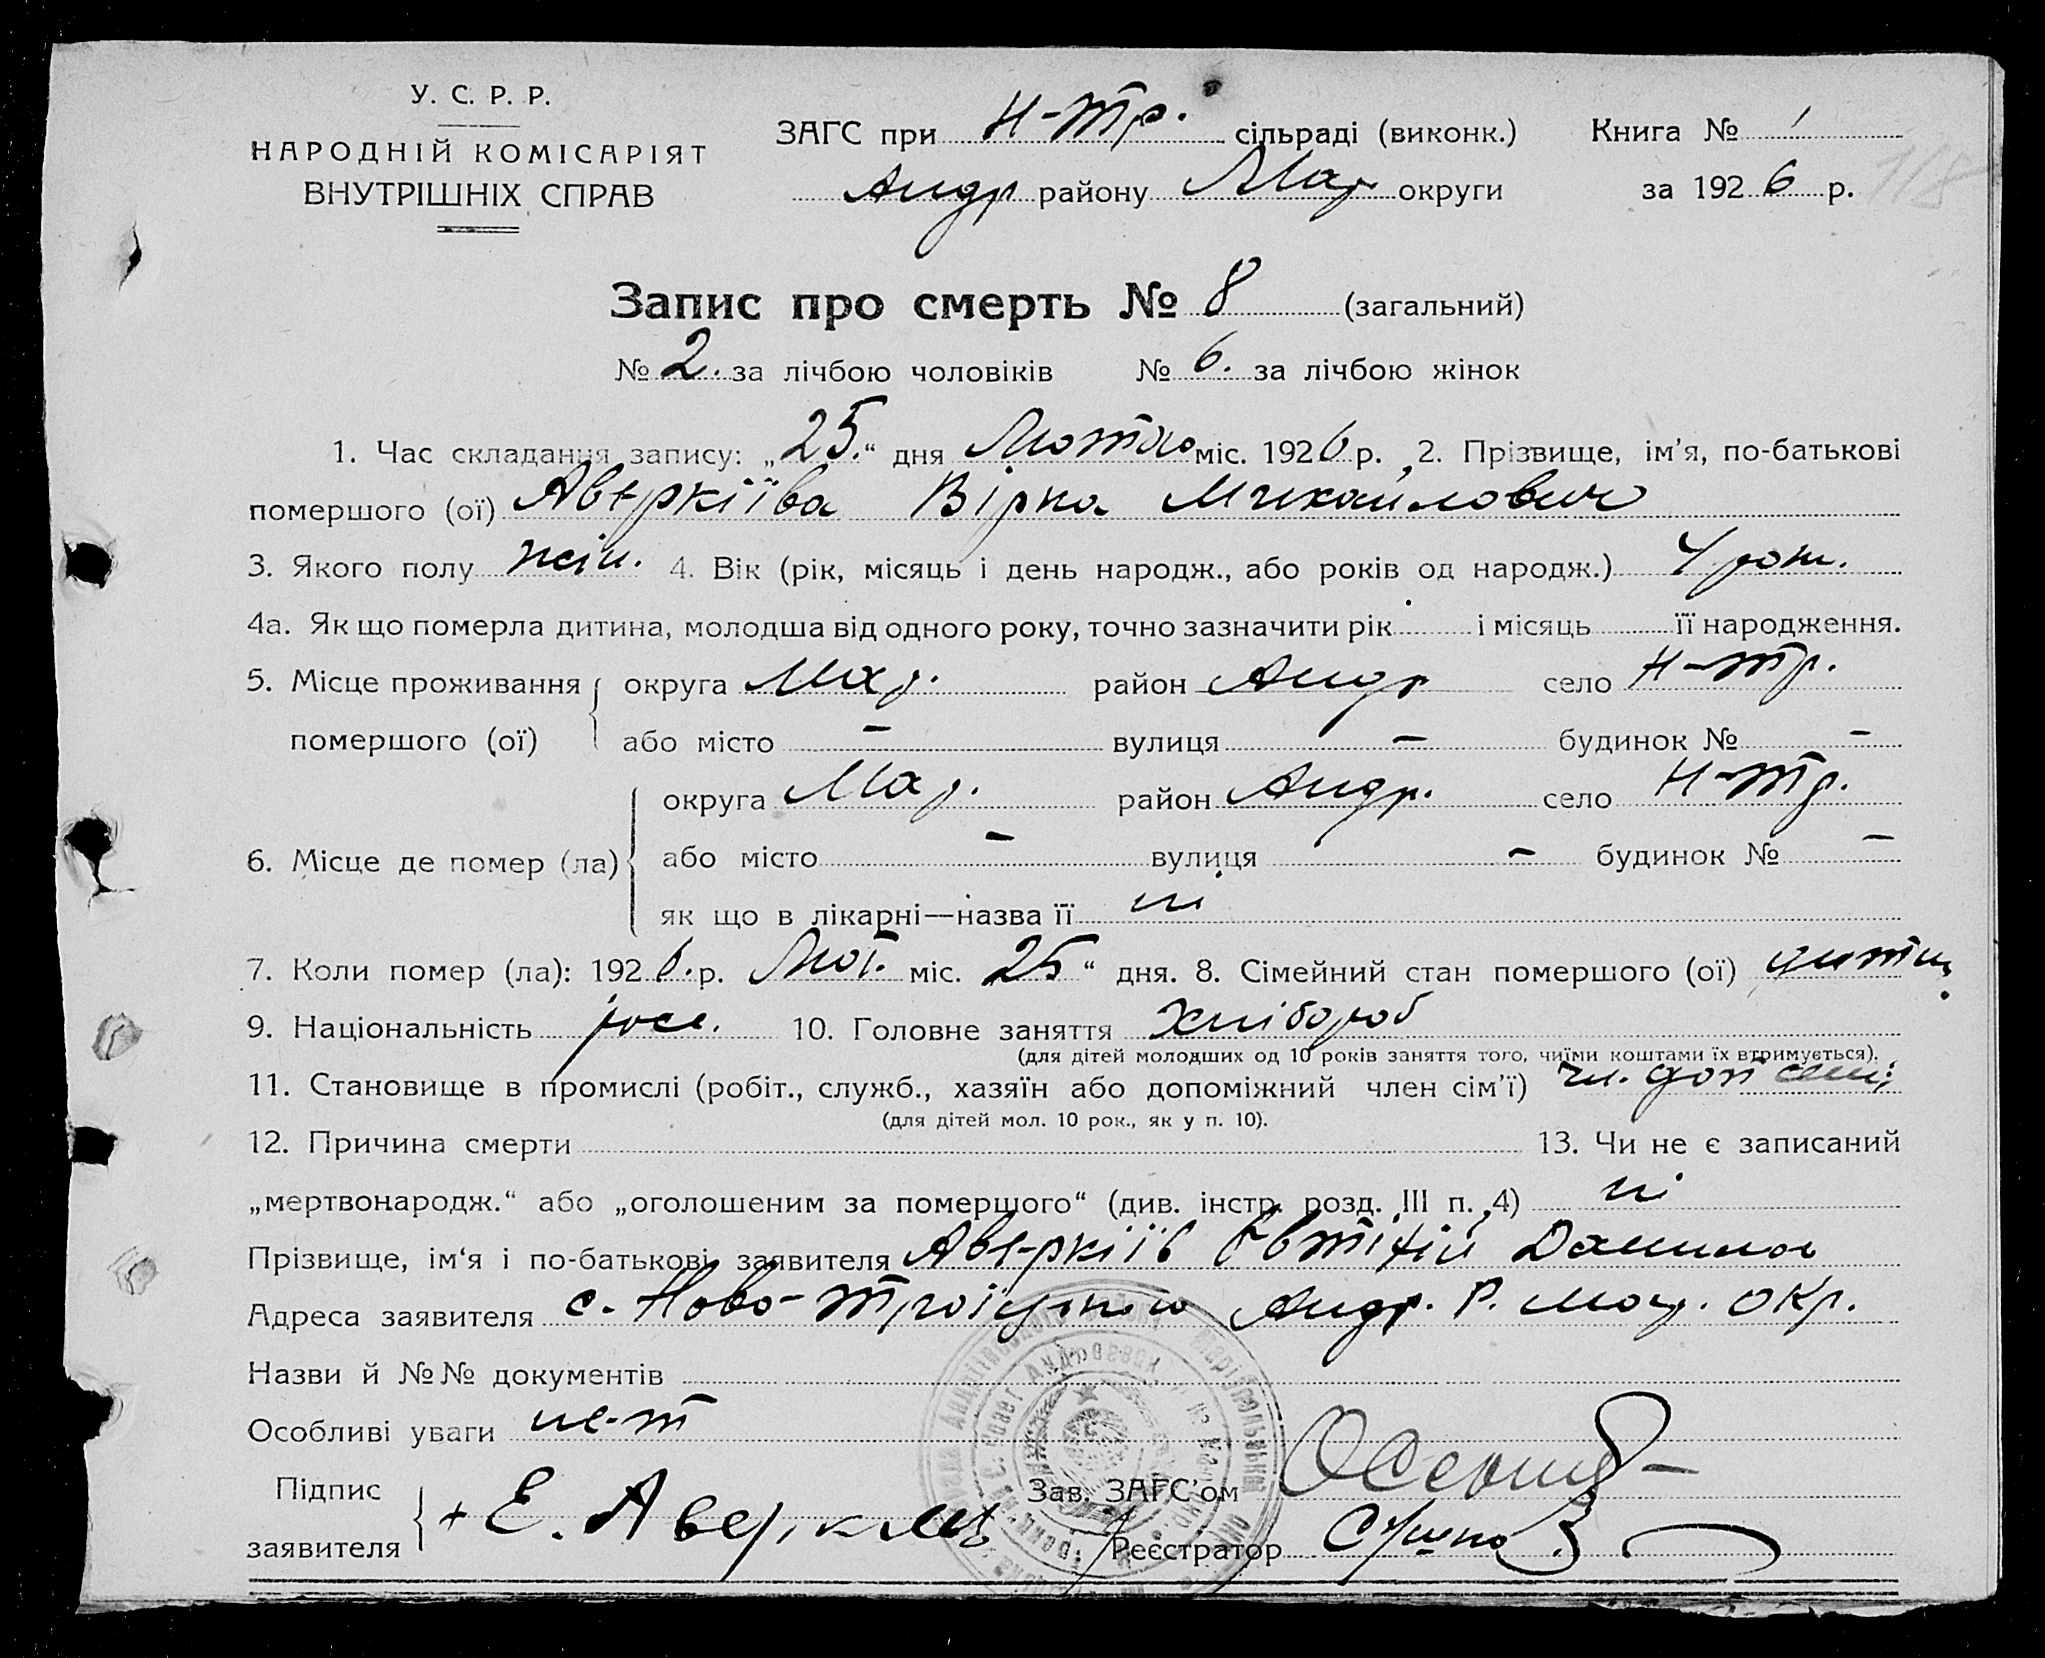 У. С. Р. Р.
НАРОДНІЙ КОМІСАРІЯТ
ВНУТРІШНІХ СПРАВ
ЗАГС при Н-Тр. сільраді (виконк.)
Андр району Мар округи
Книга № 1
за 1926 р.
118
Запис про смерть № 8 (загальний)
№ 2. за лічбою чоловіків № 6. за лічбою жінок
1. Час складання запису: „25.“ дня Лютого міс. 1926 р. 2. Прізвище, ім’я, по-батькові
помершого (ої) Аверкіїва Вірка Михайлович
3. Якого полу жін. 4. Вік (рік, місяць і день народж., або років од народж.) 4 рок.
4а. Як що померла дитина, молодша від одного року, точно зазначити рік і місяць її народження.
5. Місце проживання округа Мар. район Андр село Н-Тр.
помершого (ої) або місто – вулиця – будинок № –
округа Мар. район Андр. село Н-Тр.
6. Місце де помер (ла) або місто – вулиця – будинок № –
як що в лікарні—назва її ні
7. Коли помер (ла): 1926. р. Лют. міс. 25 “ дня. 8. Сімейний стан помершого (ої) дитин.
9. Національність росс. 10. Головне заняття Хлібороб
(для дітей молодших од 10 років заняття того, чиїми коштами їх втримується).
11. Становище в промислі (робіт., служб., хазяїн або допоміжний член сім’ї) чл. доп сем.
(для дітей мол. 10 рок., як у п. 10).
12. Причина смерти 13. Чи не є записаний
„мертвонародж.“ або „оголошеним за помершого“ (див. інстр. розд. III п. 4) ні
Прізвище, ім‘я і по-батькові заявителя Аверкіїв Євтіхій Данилов
Адреса заявителя с. Ново-Троіцького Андр. Р. Мар. окр.
Назви й №№ документів
Особливі уваги не-т
Підпис
заявителя + Е. Аверкиев
Зав. ЗАГС’ом
Реєстратор